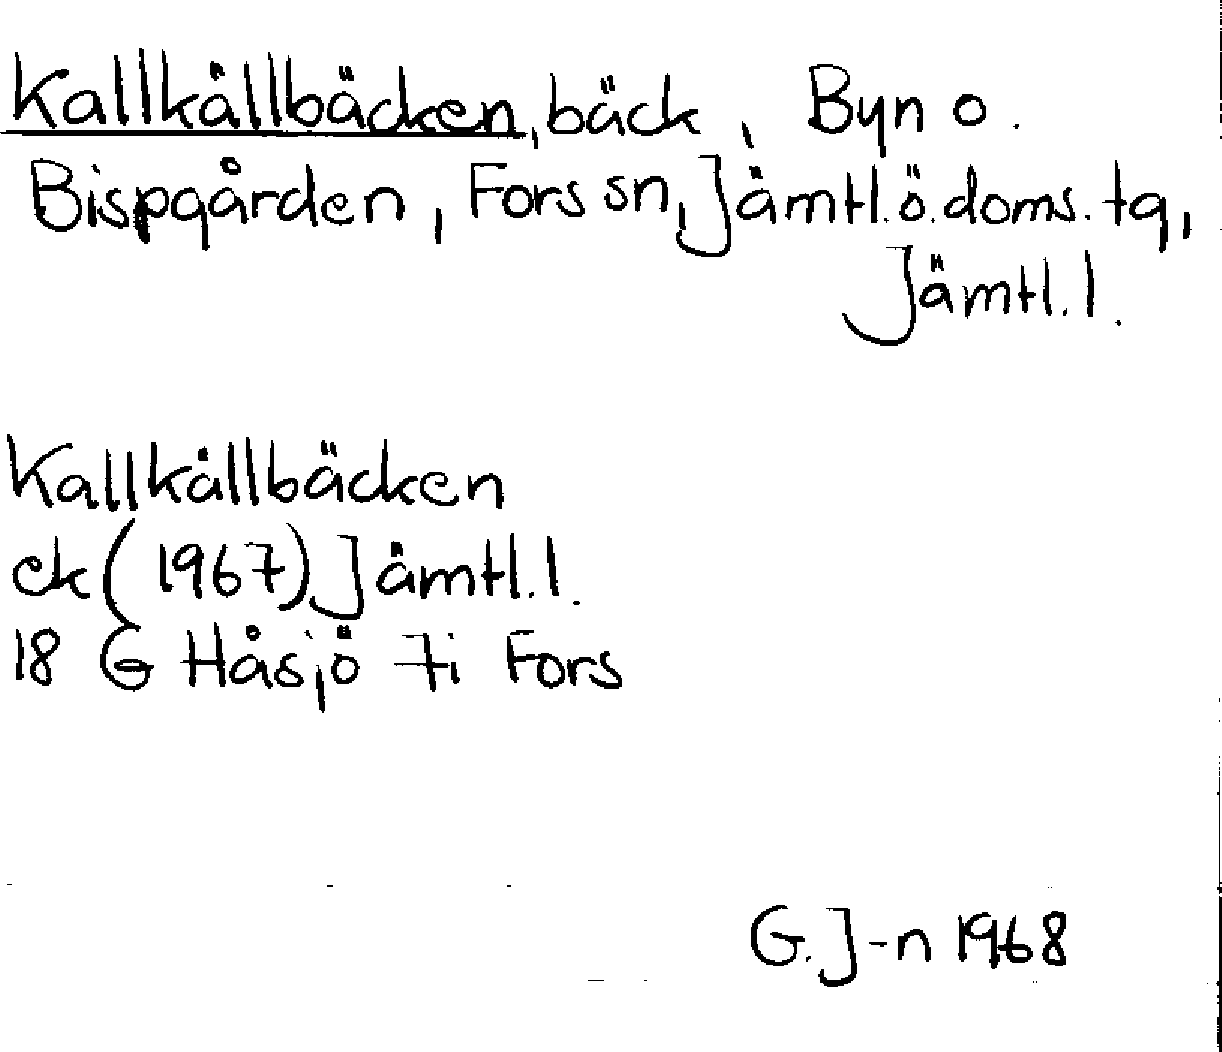 Kallkällbäcken, bäck, Byn o.
Bispgården, Fors sn, Jämtl. ö. doms. tg,
Jämtl. l.
Kallkällbäcken
ek (1967), Jämtl. l.
18 G Håsjö 7i Fors
G. J-n 1968